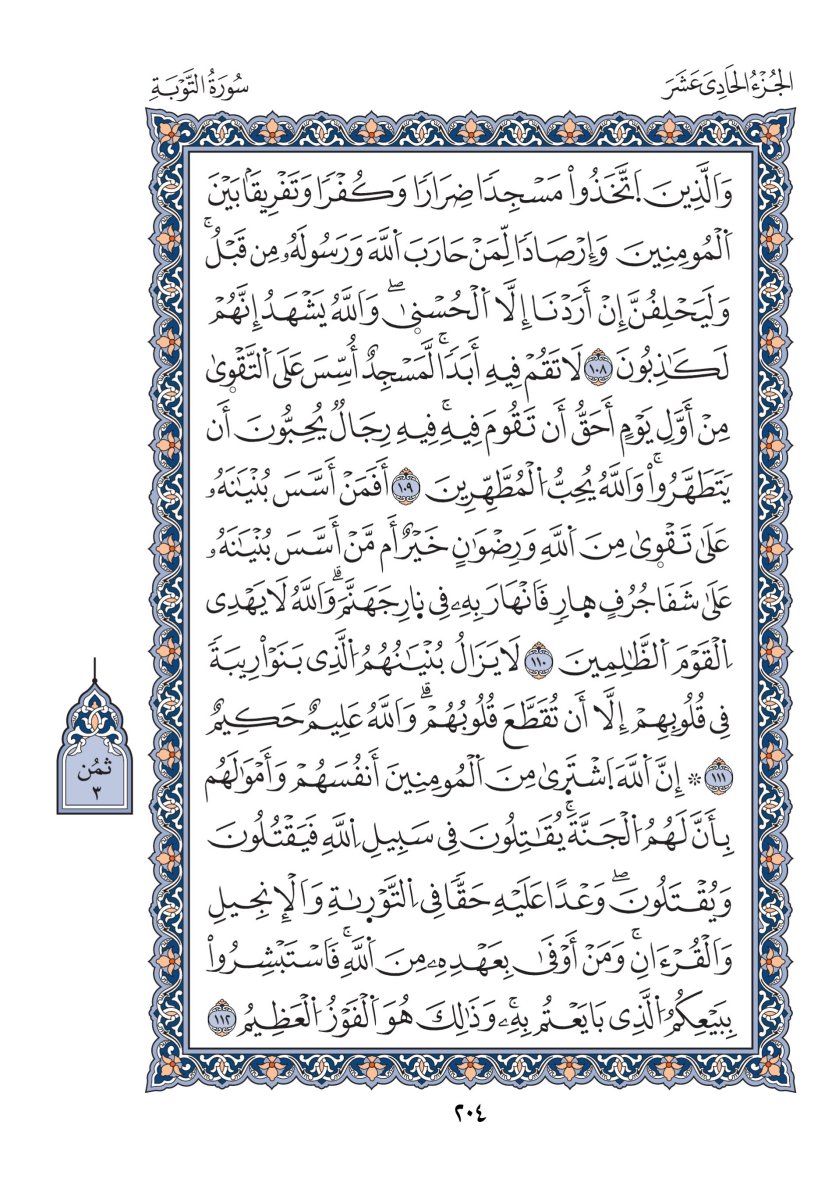 الجُزْءُ الحَادِى عَشَرَ
سُورَةُ التَّوْبَةِ
وَالَّذِينَ اَتَّخَذُواْ مَسْجِدٗا ضِرَارٗا وَكُفْرٗا وَتَفْرِيقَۢا بَيْنَ
اَلْمُومِنِينَ وَإِرْصَادٗا لِّمَنْ حَارَبَ اَللَّهَ وَرَسُولَهُۥ مِن قَبْلُۚ
وَلَيَحْلِفُنَّ إِنْ أَرَدْنَا إِلَّا اَلْحُسْنٜىٰۖ وَاَللَّهُ يَشْهَدُ إِنَّهُمْ
لَكَٰذِبُونَ ١٠٨ لَا تَقُمْ فِيهِ أَبَدٗاۚ لَّمَسْجِدٌ أُسِّسَ عَلَى اَلتَّقْوٜىٰ
مِنْ أَوَّلِ يَوْمٍ أَحَقُّ أَن تَقُومَ فِيهِۚ فِيهِ رِجَالٞ يُحِبُّونَ أَن
يَتَطَهَّرُواْۚ وَاَللَّهُ يُحِبُّ اُلْمُطَّهِّرِينَ ١٠٩ أَفَمَنْ أَسَّسَ بُنْيَٰنَهُۥ
عَلَىٰ تَقْوٜىٰ مِنَ اَللَّهِ وَرِضْوَٰنٍ خَيْرٌ أَم مَّنْ أَسَّسَ بُنْيَٰنَهُۥ
عَلَىٰ شَفَا جُرُفٍ هٜارٖ فَاَنْهَارَ بِهِۦ فِى نٜارِ جَهَنَّمَۗ وَاَللَّهُ لَا يَهْدِى
اِلْقَوْمَ اَلظَّٰلِمِينَ ١١٠ لَا يَزَالُ بُنْيَٰنُهُمُ اُلَّذِى بَنَوْاْ رِيبَةٗ
فِى قُلُوبِهِمْ إِلَّا أَن تُقَطَّعَ قُلُوبُهُمْۗ وَاَللَّهُ عَلِيمٌ حَكِيمٌ
١١١ ۞ إِنَّ اَللَّهَ اَشْتَرٜىٰ مِنَ اَلْمُومِنِينَ أَنفُسَهُمْ وَأَمْوَٰلَهُم
بِأَنَّ لَهُمُ اُلْجَنَّةَۚ يُقَٰتِلُونَ فِى سَبِيلِ اِللَّهِ فَيَقْتُلُونَ
وَيُقْتَلُونَۖ وَعْدًا عَلَيْهِ حَقّٗا فِى اِلتَّوْرٜىٰةِ وَاَلْإِنجِيلِ
وَاَلْقُرْءَانِۚ وَمَنْ أَوْفَىٰ بِعَهْدِهِۦ مِنَ اَللَّهِۚ فَاَسْتَبْشِرُواْ
بِبَيْعِكُمُ اُلَّذِى بَايَعْتُم بِهِۦۚ وَذَٰلِكَ هُوَ اَلْفَوْزُ اُلْعَظِيمُ ١١٢
ثُمُن
٣
٢٠٤